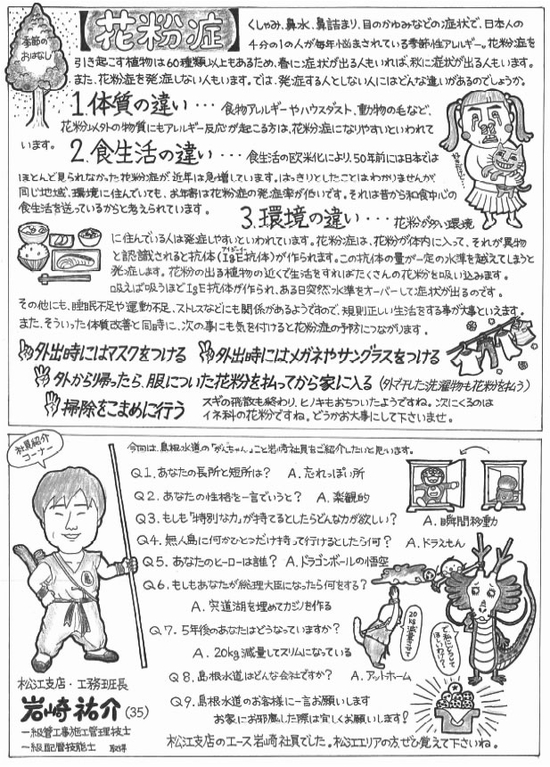 季節の
おはなし
花粉症
くしゃみ、鼻水、鼻詰まり、目のかゆみなどの症状で、日本人の
4分の1の人が毎年悩まされている季節性アレルギー。花粉症を
引き起こす植物は60種類以上もあるため、春に症状が出る人もいれば、秋に症状が出る人もいます。
また、花粉症を発症しない人もいます。では、発症する人としない人にはどんな違いがあるのでしょうか。
1.体質の違い・・・ 食物アレルギーやハウスダスト、動物の毛など、
花粉以外の物質にもアレルギー反応が起こる方は、花粉症になりやすいといわれて
います。
2.食生活の違い・・・ 食生活の欧米化により、50年前には日本では
ほとんど見られなかった花粉症が近年は急増しています。はっきりとしたことはわかりませんが、
同じ地域、環境に住んでいても、お年寄は花粉症の発症率が低いです。それは昔から和食中心の
食生活を送っているからと考えられています。
3.環境の違い・・・ 花粉が多い環境
に住んでいる人は発症しやすいといわれています。花粉症は、花粉が体内に入って、それが異物
と認識されると抗体(IgE抗体)が作られます。この抗体の量が一定の水準を越えてしまうと
発症します。花粉の出る植物の近くで生活をすればたくさんの花粉を吸い込みます。
吸えば吸うほどIgE抗体が作られ、ある日突然水準をオーバーして症状が出るのです。
その他にも、睡眠不足や運動不足、ストレスなどにも関係があるようですので、規則正しい生活をする事が大事といえます。
また、そういった体質改善と同時に、次の事にも気を付けると花粉症の予防につながります。
外出時にはマスクをつける
外出時にはメガネやサングラスをつける
外から帰ったら、服についた花粉を払ってから家に入る(外で干した洗濯物も花粉を払う)
掃除をこまめに行う
スギの飛散も終わり、ヒノキもおちついたようですね。次にくるのは
イネ科の花粉ですね。どうかお大事にして下さいませ。
社員紹介
コーナー
今回は、島根水道の「がんちゃん」こと岩崎社員をご紹介したいと思います。
Q1.あなたの長所と短所は? A.忘れっぽい所
Q2.あなたの性格を一言でいうと? A.楽観的
Q3.もしも"特別な力"が持てるとしたらどんな力が欲しい? A.瞬間移動
Q4.無人島に何かひとつだけ持って行けるとしたら何? A.ドラえもん
Q5.あなたのヒーローは誰? A.ドラゴンボールの悟空
Q6.もしもあなたが総理大臣になったら何をする?
A.宍道湖を埋めてカジノを作る
Q7.5年後のあなたはどうなっていますか?
A.20kg減量してスリムになっている
Q8.島根水道はどんな会社ですか? A.アットホーム
Q9.島根水道のお客様に一言お願いします
お家にお邪魔した際は宜しくお願いします!
20kg減量させて
松江支店・工務班長
岩崎祐介(35)
一級管工事施工管理技士
一級配管技能士
松江支店のエース岩崎社員でした。松江エリアの方、ぜひ覚えて下さいね。